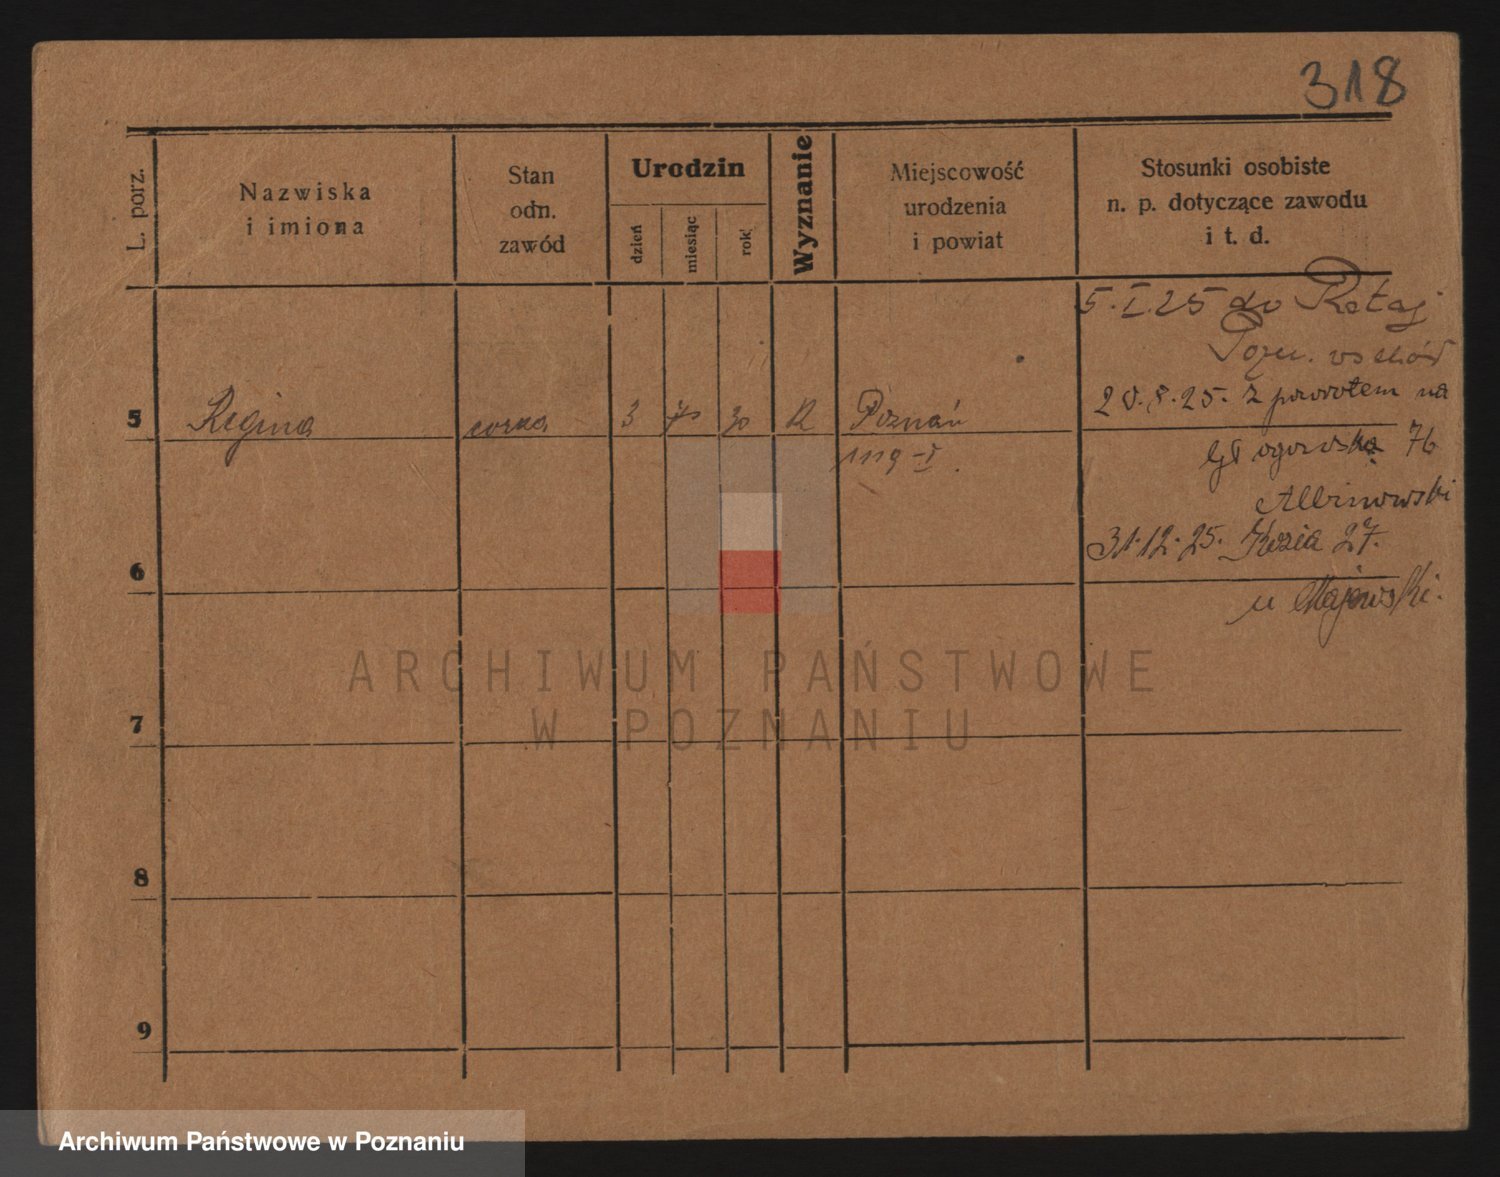 318
L. porz.
Nazwiska
i imiona
Stan
odn.
zawód
Urodzin
dzień
miesiąc
rok
Wyznanie
Miejscowość
urodzenia
i powiat
Stosunki osobiste
n. p. dotyczące zawodu
i t. d.
5.I.25 do Rataj
Pozn. wschód
5
Regina
corka
3
30
R
Poznań
20.8.25. z powrotem na
Głogowska 76
Albinowski
31.12.25. Kozia 27.
u Majewski.
6
7
8
9
ARCHIWUM PAŃSTWOWE
W POZNANIU
Archiwum Państwowe w Poznaniu